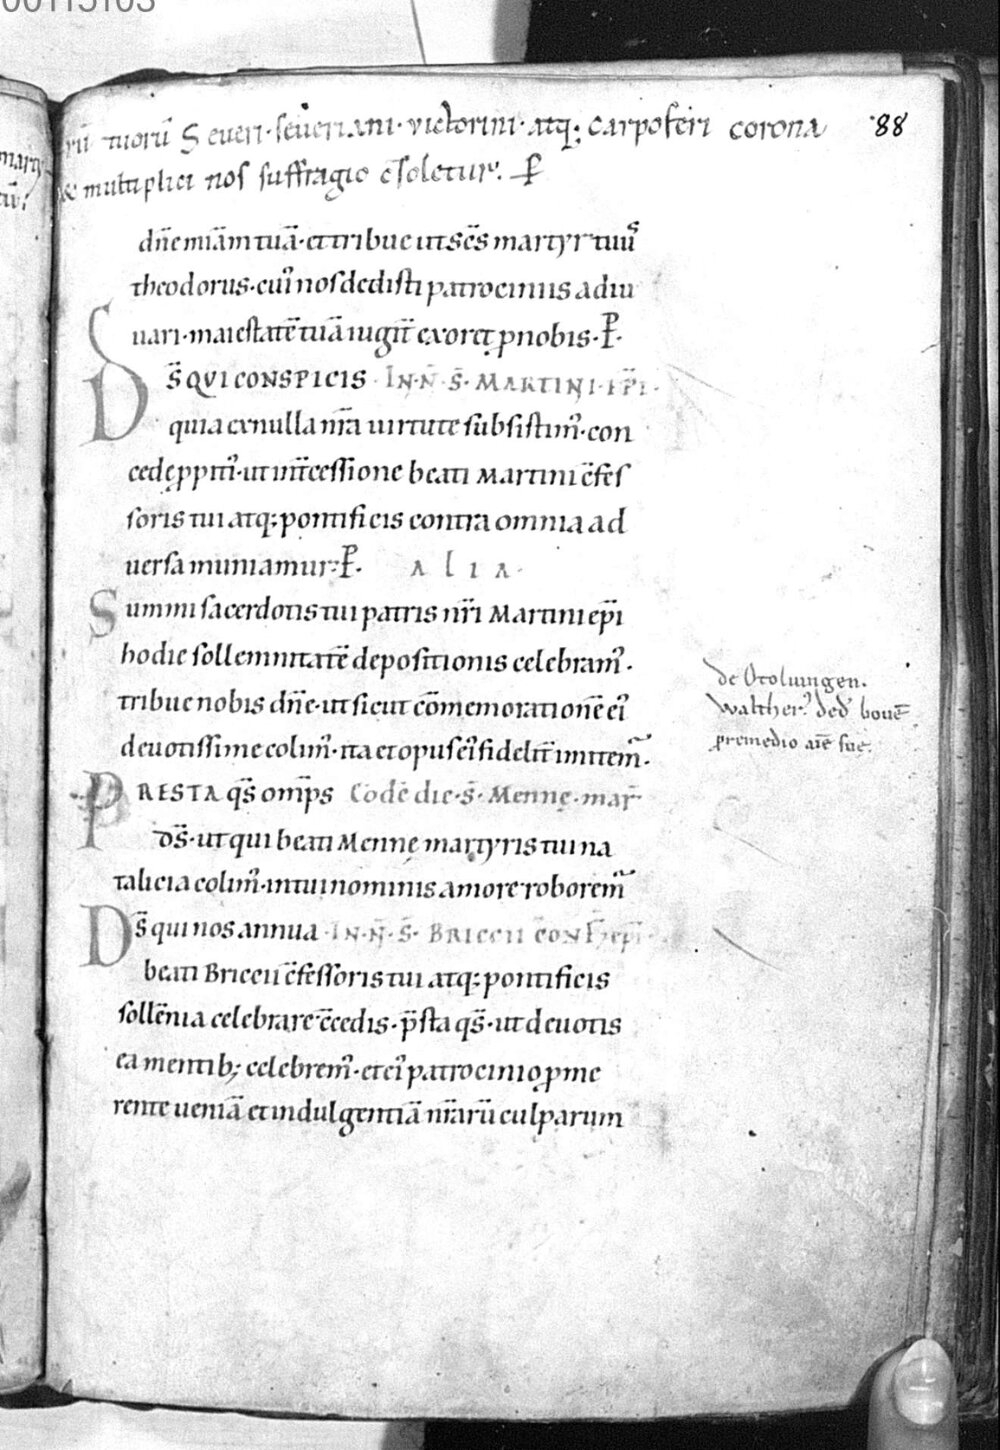 00115103
rū tuorū Seueri· seueriani· victorini· atq; carpoferi corona 88
& multiplici nos suffragio c̄soletur. P̄
dn̄e miām tuā· et tribue ut sc̄s martyr tuus
theodorus· cui᷒ nos dedisti patrociniis adiu
uari· maiestatē tuā iugit̄ exoret ꝓ nobis· P̄·
D S̄ QUI CONSPICIS · IN· N̄· S̄· MARTINI· EP̄I·
quia ex nulla nr̄a uirtute subsistim᷒· con
cede ꝓpiti᷒· ut int̄cessione beati Martini c̄fes
soris tui atq; pontificis contra omnia ad
uersa muniamur· P̄· ALIA·
Summi sacerdotis tui patris nr̄i Martini ep̄i
hodie sollemnitatē depositionis celebram᷒·
tribue nobis dn̄e· ut sicut c̄omemorationē ei᷒
deuotissime colim᷒· ita et opus ei᷒ fidelit̄ imitem᷒·
PRESTA qs̄ om̄ps Eodē die· S̄· Menne· mar̄
ds̄· ut qui beati Mennę martyris tui na
talicia colim᷒· in tui nominis amore roborem᷒
Ds̄ qui nos annua · IN· N̄· S̄· BRICCII CONF̄ ep̄i·
beati Briccii c̄fessoris tui atq; pontificis
sollēnia celebrare c̄cedis· p̄sta qs̄· ut deuotis
ea mentib; celebrem᷒· et ei᷒ patrocinio ꝓme
rente ueniā et indulgentiā nr̄arū culparum
de Otoluingen.
Walther᷒ ded̄ bouē
ꝓ remedio aīe sue.